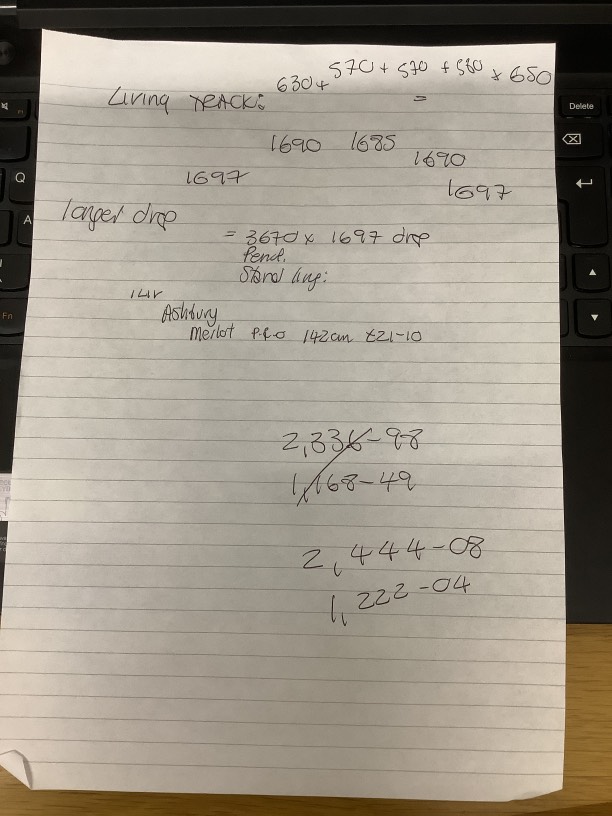 630+ 570 + 570 + 580 + 650
Living TRACK: =
1690 1685 1690
1697 1697
longer drop
= 3670 x 1697 drop
Pencil
Stand ling:
Ashbury
Merlot P.R.O 142cm £21-10
2,336-98
1,168-49
2,444-08
1,222-04
Delete
Q
A
Fn